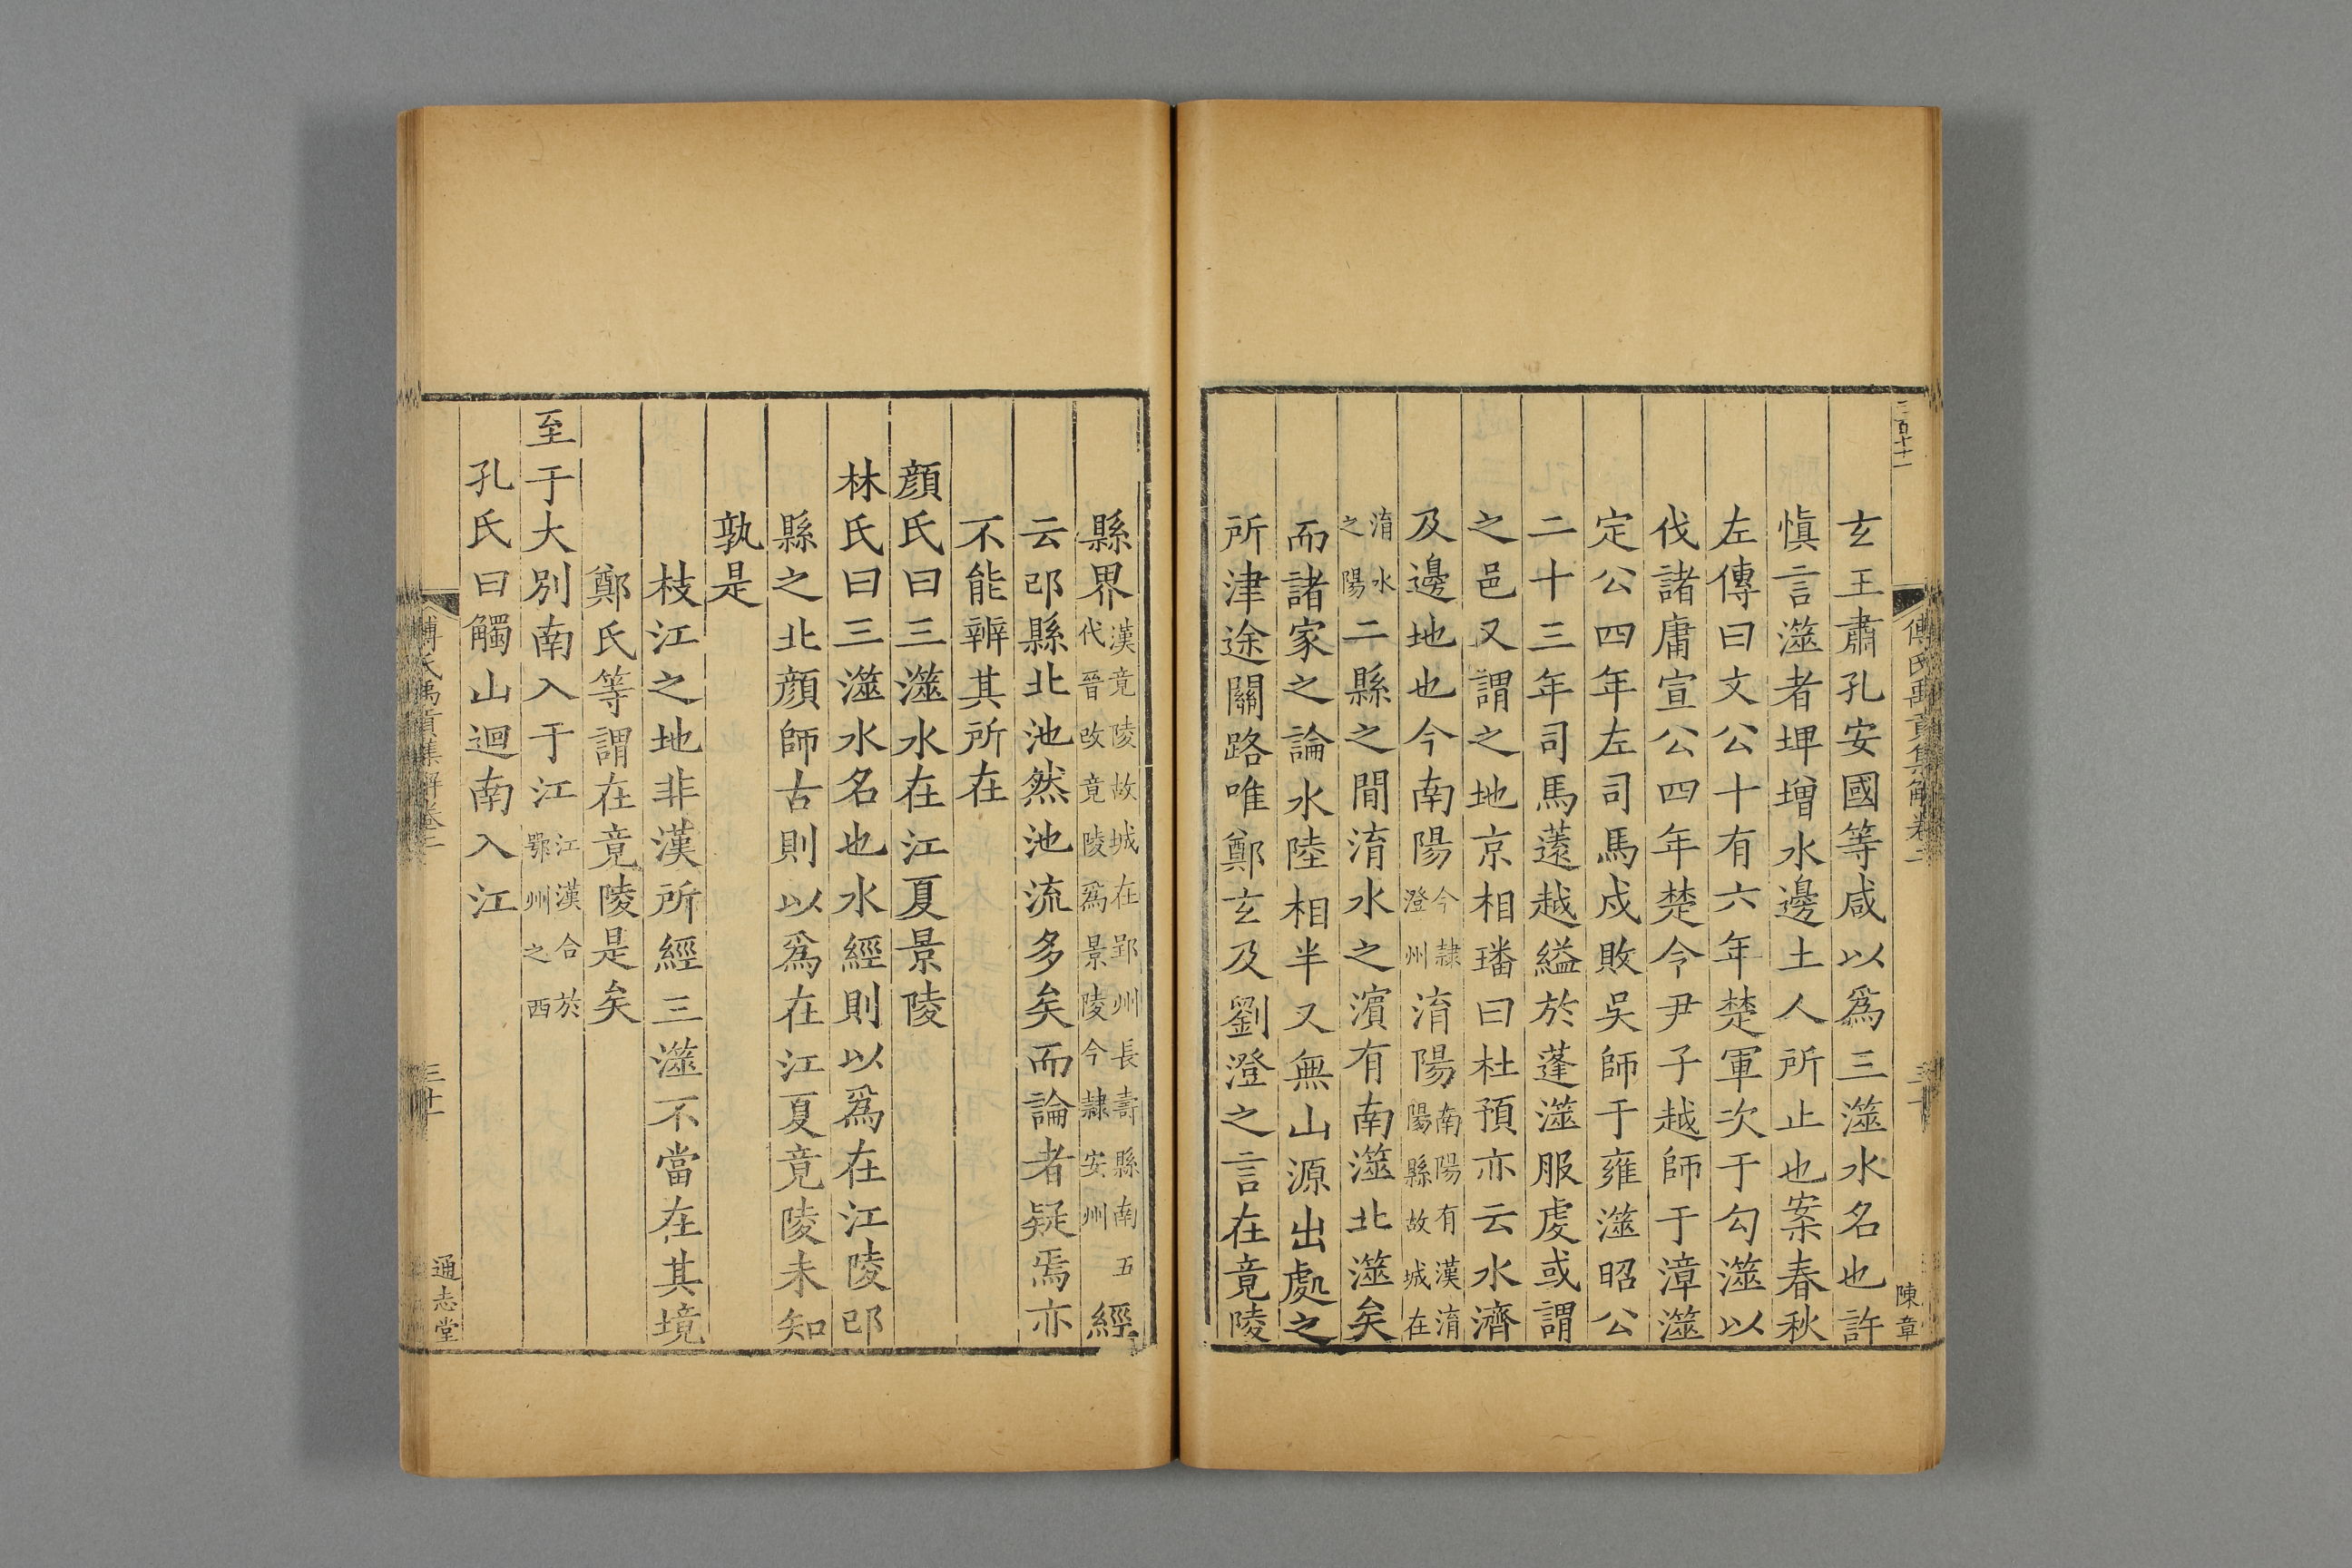 三百十二
傅氏禹貢集解卷二
陳章
玄王肅孔安國等咸以爲三澨水名也許
愼言澨者埤增水邊土人所止也案春秋
左傳曰文公十有六年楚軍次于勾澨以
伐諸庸宣公四年楚令尹子越師于漳澨
定公四年左司馬戍敗吳師于雍澨昭公
二十三年司馬薳越縊於蓬澨服虔或謂
之邑又謂之地京相璠曰杜預亦云水濟
及邊地也今南陽今隷澄州淯陽南陽有漢淯陽縣故城在
淯水之陽二縣之間淯水之濱有南澨北澨矣
而諸家之論水陸相半又無山源出處之
所津途關路唯鄭玄及劉澄之言在竟陵
縣界漢竟陵故城在郢州長壽縣南五代晉改竟陵爲景陵今隷安州經
云邔縣北池然池流多矣而論者疑焉亦
不能辨其所在
顔氏曰三澨水在江夏景陵
林氏曰三澨水名也水經則以爲在江陵邔
縣之北顔師古則以爲在江夏竟陵未知
孰是
枝江之地非漢所經三澨不當在其境
鄭氏等謂在竟陵是矣
至于大別南入于江江漢合於鄂州之西
孔氏曰觸山迴南入江
傅氏禹貢集解卷二
三十一
通志堂